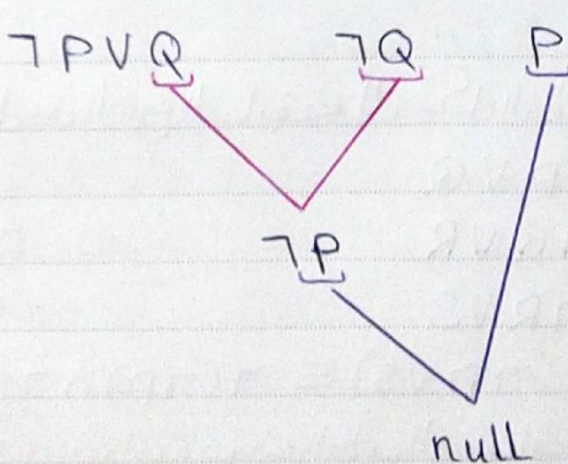 ¬P∨Q ¬Q P
¬P
null